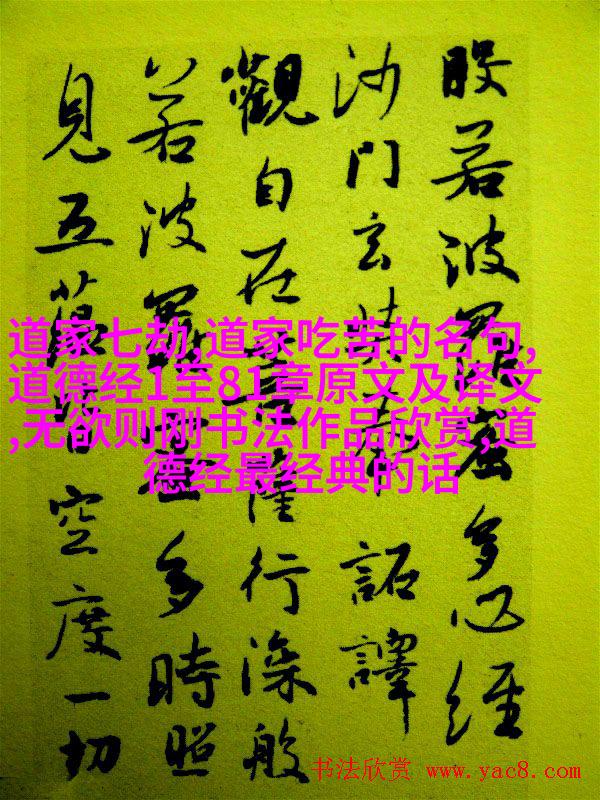 般若波羅蜜多心經
沙門玄奘奉 詔譯
觀自在菩薩行深般
若波羅蜜多時照
見五蘊皆空度一切
道家七劫,道家吃苦的名句,
道德经1至81章原文及译文
,无欲则刚书法作品欣赏,道
德经最经典的话
书法欣赏 www.yac8.com